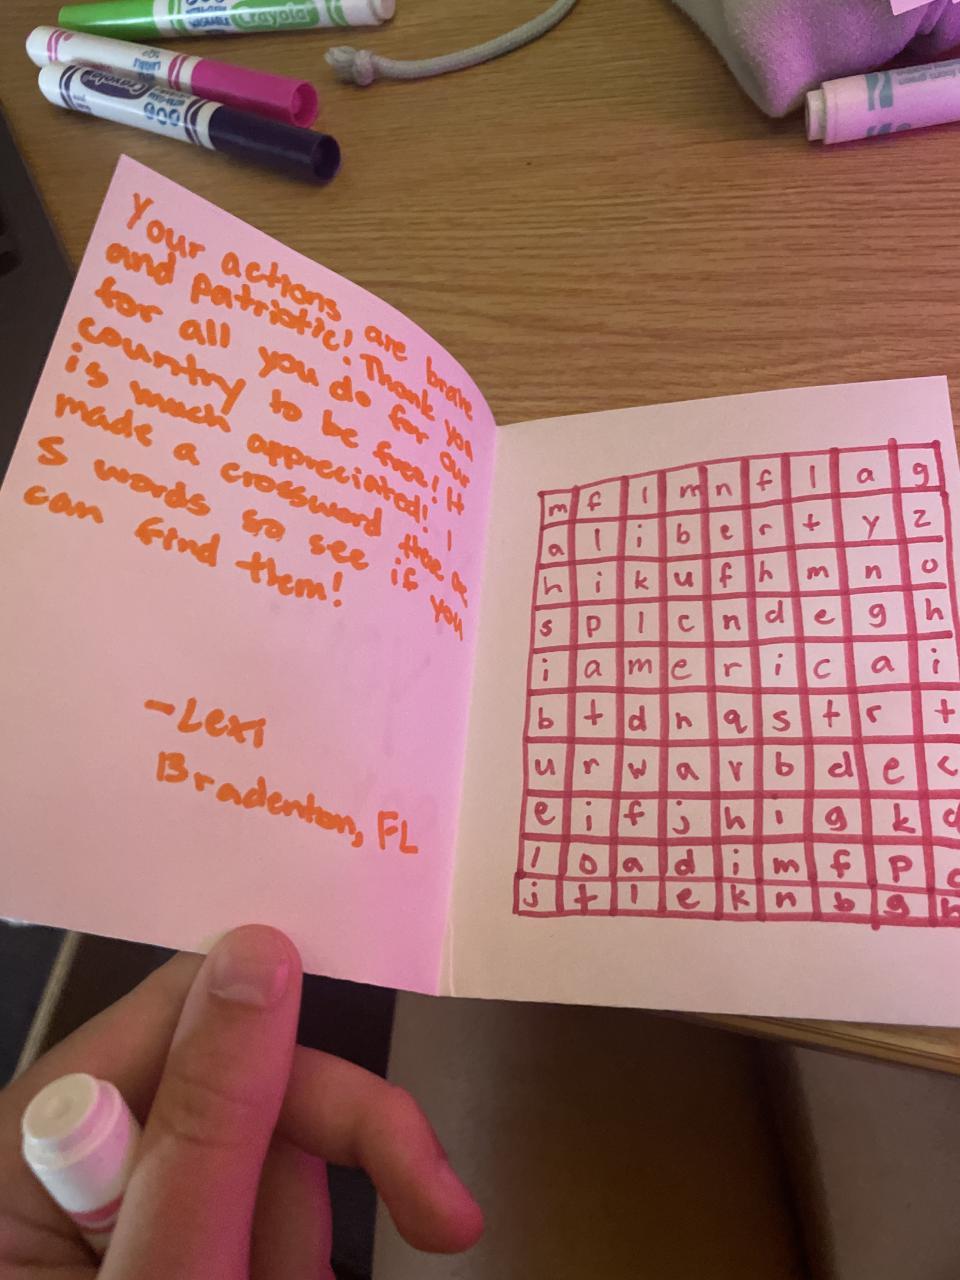 Crayola
Crayola
Your actions are brave
and patriotic! Thank you
for all you do for our
country to be free! It
is much appreciated! I
made a crossword there are
5 words so see if you
can find them!
-Lexi
Bradenton, FL
m f l m n f l a g
a l i b e r t y z
h i k u f h m n o
s p l c n d e g h
i a m e r i c a i
b t d n q s t r t
u r w a r b d e c
e i f j h i g k d
l o a d i m f p
j t l e k n b g h